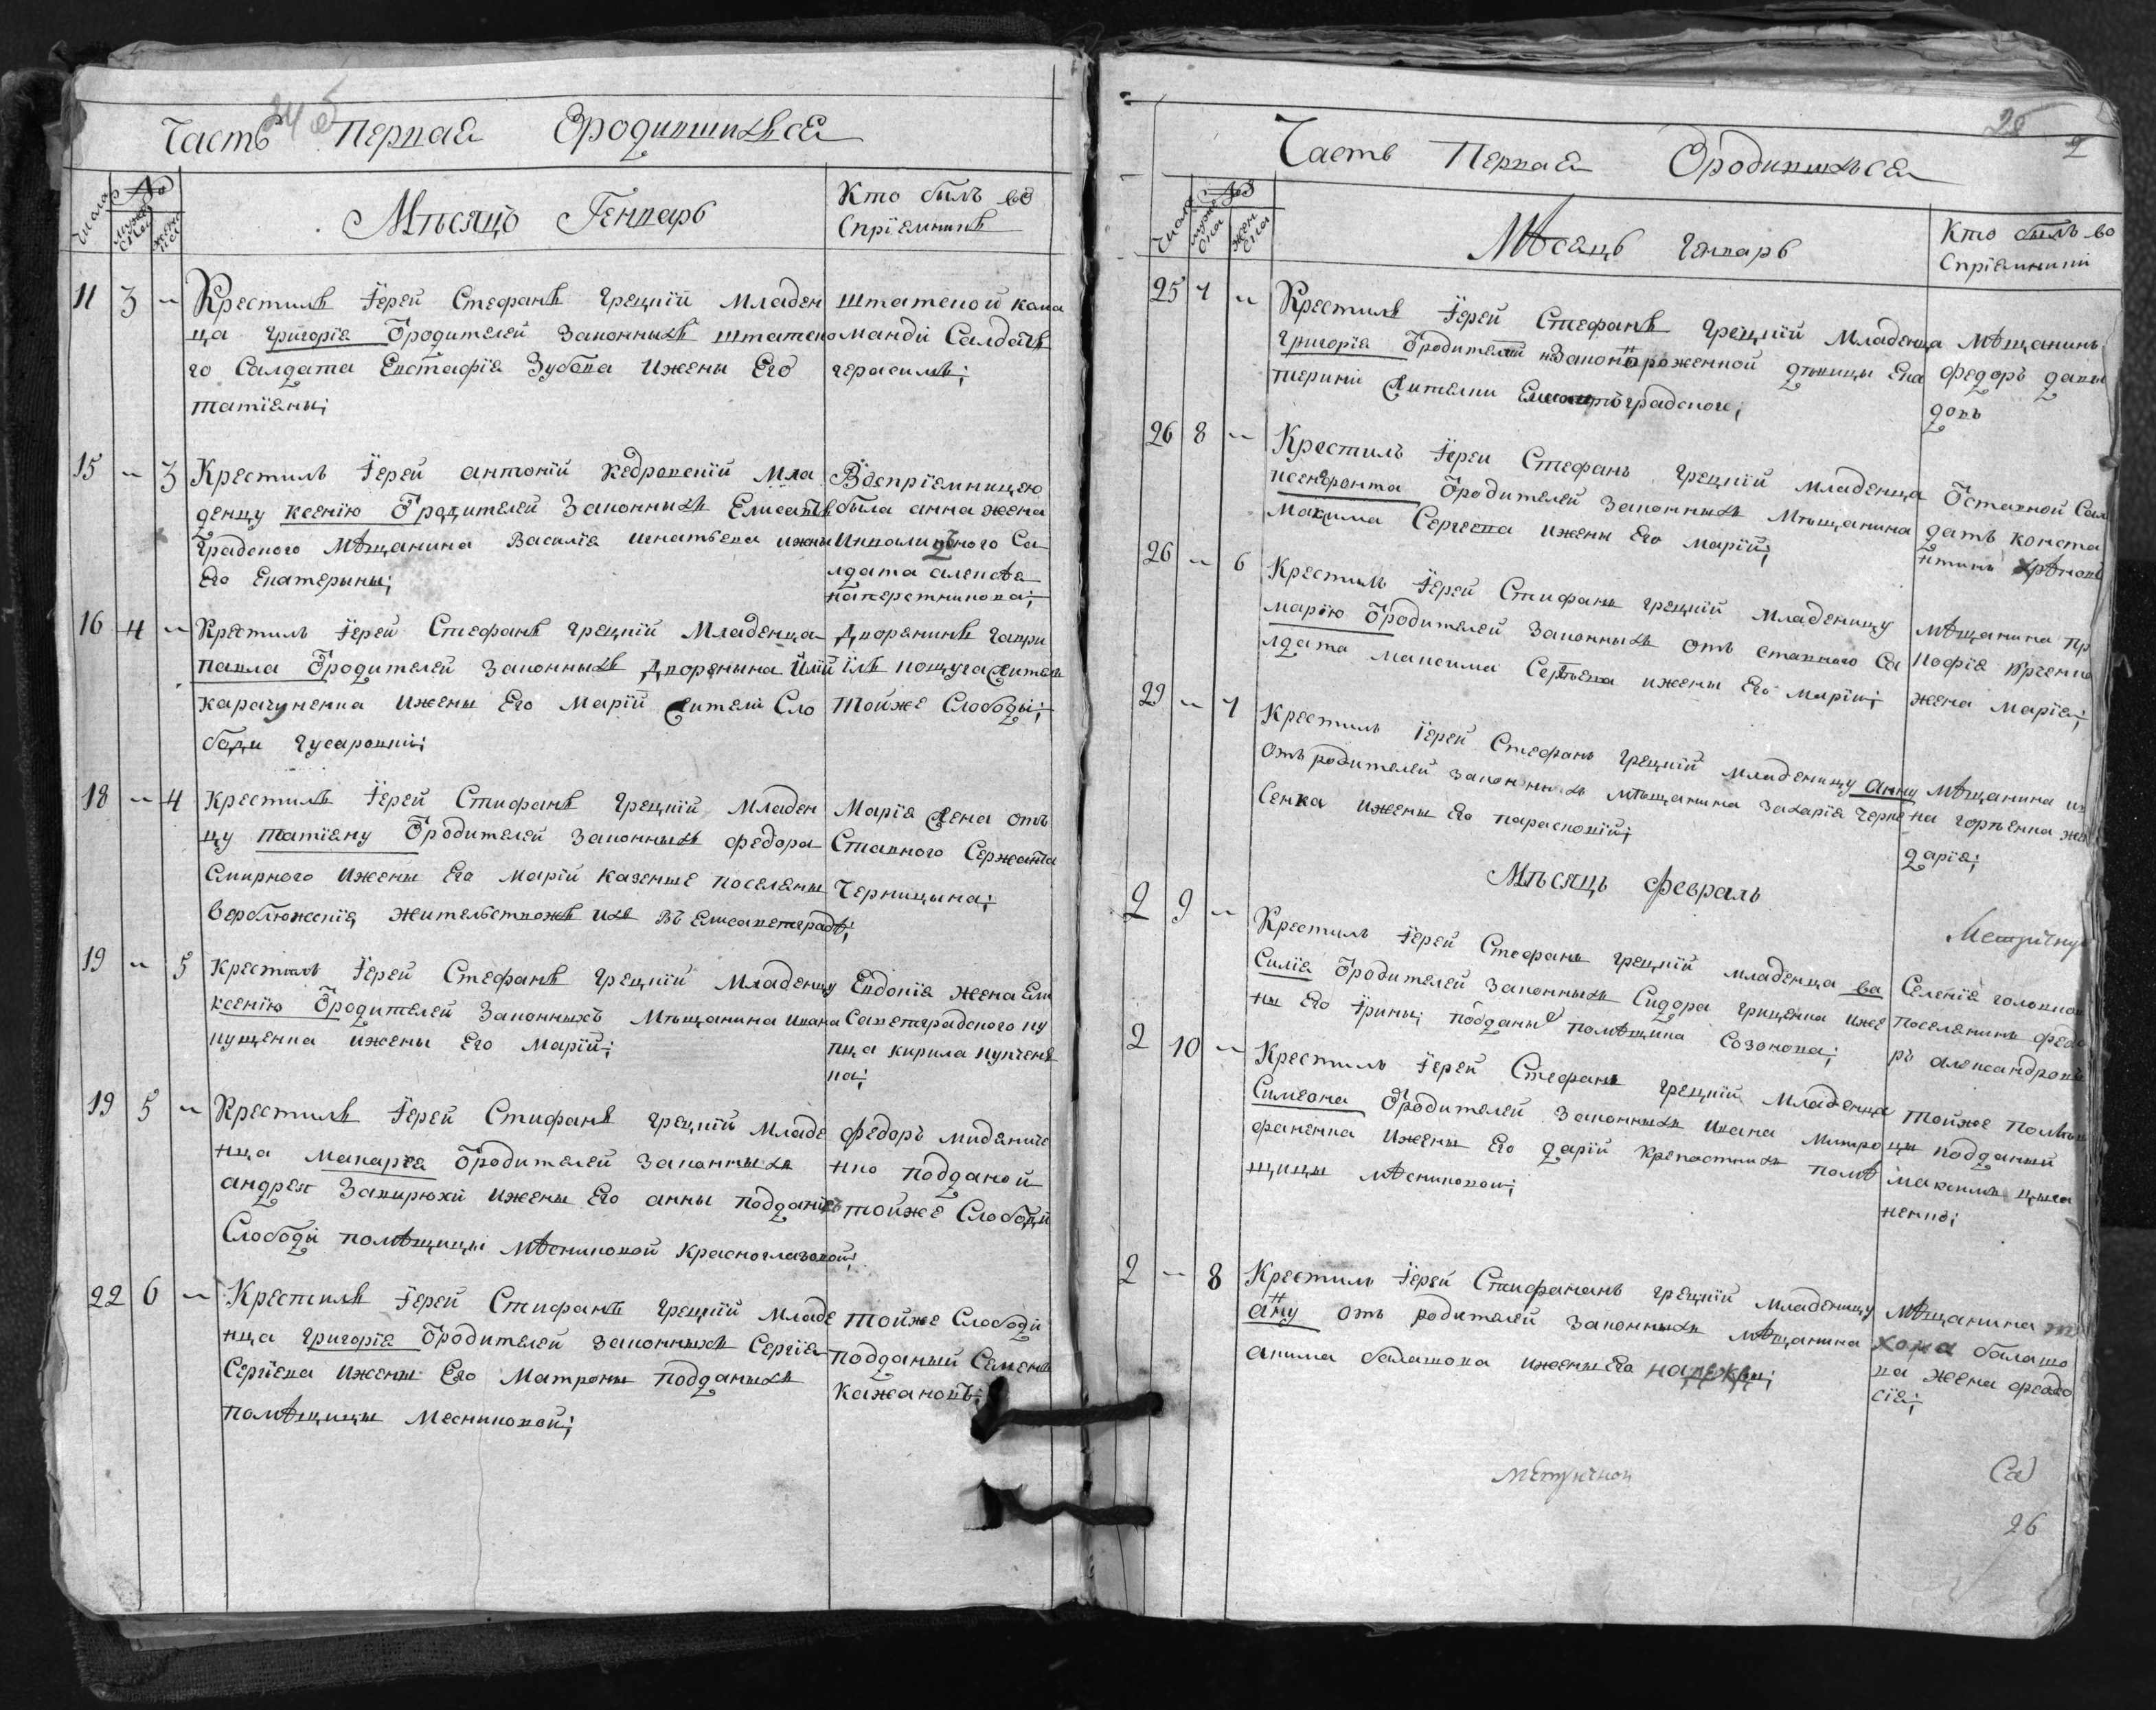 Часть Первая Ѡродившихся
Числа
№
мужеска
женска
Мѣсяцъ Генварь
Кто былъ во
спрїемникъ
11 3 Крестилъ Їерей Стефанъ Грецкїй Младен
ца Григорїя Ѿродителей Законныхъ штатско
го Салдата Евстафїя Зубова Ижены Его
Татїаны;
штатской кома
манды Салдатъ
герасимъ;
15 3 Крестилъ Їерей антонїй Кедровскїй Мла
денцу ксенїю Ѿродителей Законныхъ Елисавет
градского Мѣщанина Василїя Игнатьева ижены
Его Екатерины;
Воспрїемницею
была анна жена
Инвалидного Са
лдата алексѣя
16 4 Крестилъ Їерей Стефанъ Грецкїй Младенца
павла Ѿродителей Законныхъ Дворянина Илїи
карачуненка Ижены Его Марїй жители Сло
боди Гусаровки;
Дворянинъ гаври
їлъ жители
Тойже Слободы;
18 4 Крестилъ Їерей Стифанъ Грецкїй Младен
цу татїану Ѿродителей Законныхъ федора
Смирного Ижены Его Марїй казенные поселяны
верблюжскїя жительствомъ ихъ Въ Елисаветградѣ;
Марїя жена отъ
ставного Сержанта
Черницына;
19 5 Крестилъ Їерей Стефанъ Грецкїй Младенцу
ксенїю Ѿродителей Законныхъ Мѣщанина Ивана
пущенка ижены Его Марїй;
Евдокїя жена Ели
саветградского ку
пца кирила
ка;
19 5 Крестилъ Їерей Стифанъ Грецкїй Младе
нца Макарїя Ѿродителей Законныхъ
андрея Ижены Его анны подданыхъ
Слободи помѣщицы Мѣсниковой Красноглазовой;
федоръ
нко подданой
тойже Слободи
22 6 Крестилъ Їерей Стифанъ Грецкїй Младе
нца Григорїя Ѿродителей Законныхъ Сергїя
Сергїева Ижены Его Матроны подданыхъ
помѣщицы Месниковой;
Тойже Слободи
подданый Семенъ
кажановъ;
25
2
Часть Первая Ѡродившихся
Числа
№
мужеска
женска
Мѣсяцъ Генварь
Кто былъ во
спрїемники
25 7 Крестилъ Їерей Стефанъ Грецкїй Младенца
Григорїя Ѿродителей незаконорожденной дѣвицы Ека
терини жителки Елисаветградской;
Мѣщанинъ
федоръ давы
довъ
26 8 Крестилъ Їерей Стефанъ Грецкїй Младенца
ксенофонта Ѿродителей Законныхъ Мѣщанина
Максима Сергеева Ижены Его Марїй;
Ѿставной Сал
датъ конста
нтинъ
26 6 Крестилъ Їерей Стифанъ Грецкїй Младеницу
марїю Ѿродителей Законныхъ отъ ставного Са
лдата Максима ижены Его Марїи;
мѣщанина пр
кофїя
жена Марїя;
29 7 Крестилъ Їерей Стефанъ Грецкїй Младеницу анну
отъ родителей Законныхъ Мѣщанина Захарїя
сенка ижены Его парасковїй;
Мѣщанина ив
на
дарїя;
Мѣсяцъ февраль
Метричну
2 9 Крестилъ Їерей Стефанъ Грецкїй Младенца ва
силїя Ѿродителей Законныхъ Сидора Грищенка иже
ны Его Їрины; подданы помѣщика Созонова;
Селенїя
поселянинъ федо
ръ александровъ
2 10 Крестилъ Їерей Стефанъ Грецкїй Младенца
Симеона Ѿродителей Законныхъ Ивана Митро
фаненка Ижены Его дарїй крепостныхъ помѣ
щицы Мѣсниковой;
Тойже помѣщи
цы подданый
максимъ цыга
ненко;
2 8 Крестилъ Їерей Стифананъ Грецкїй Младеницу
анну отъ родителей Законныхъ Мѣщанина
акима балашова ижены Его надежды;
Мѣщанина
хома балашо
ва жена феодо
сїя;
метричной
26